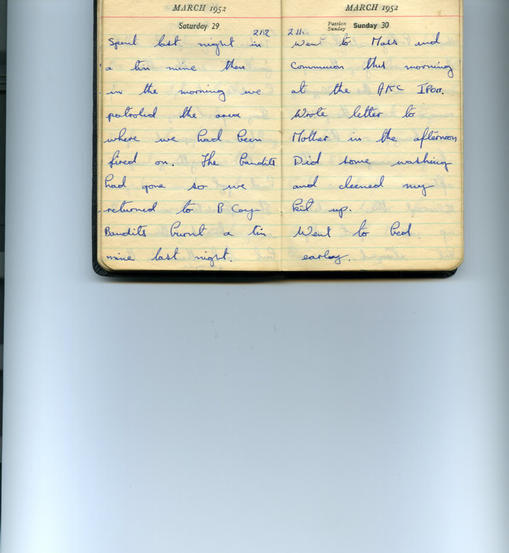 MARCH 1952
Saturday 29
212
Spent last night in
a tin mine then
in the morning we
patroled the area
where we had been
fired on. The Bandits
had gone so we
returned to B Coy
Bandits burnt a tin
mine last night.
MARCH 1952
Passion Sunday Sunday 30
211.
Went to Mass and
Communion this morning
at the AKC Ipoh.
Wrote letter to
Mother in the afternoon
Did some washing
and cleaned my
kit up.
Went to bed
early.